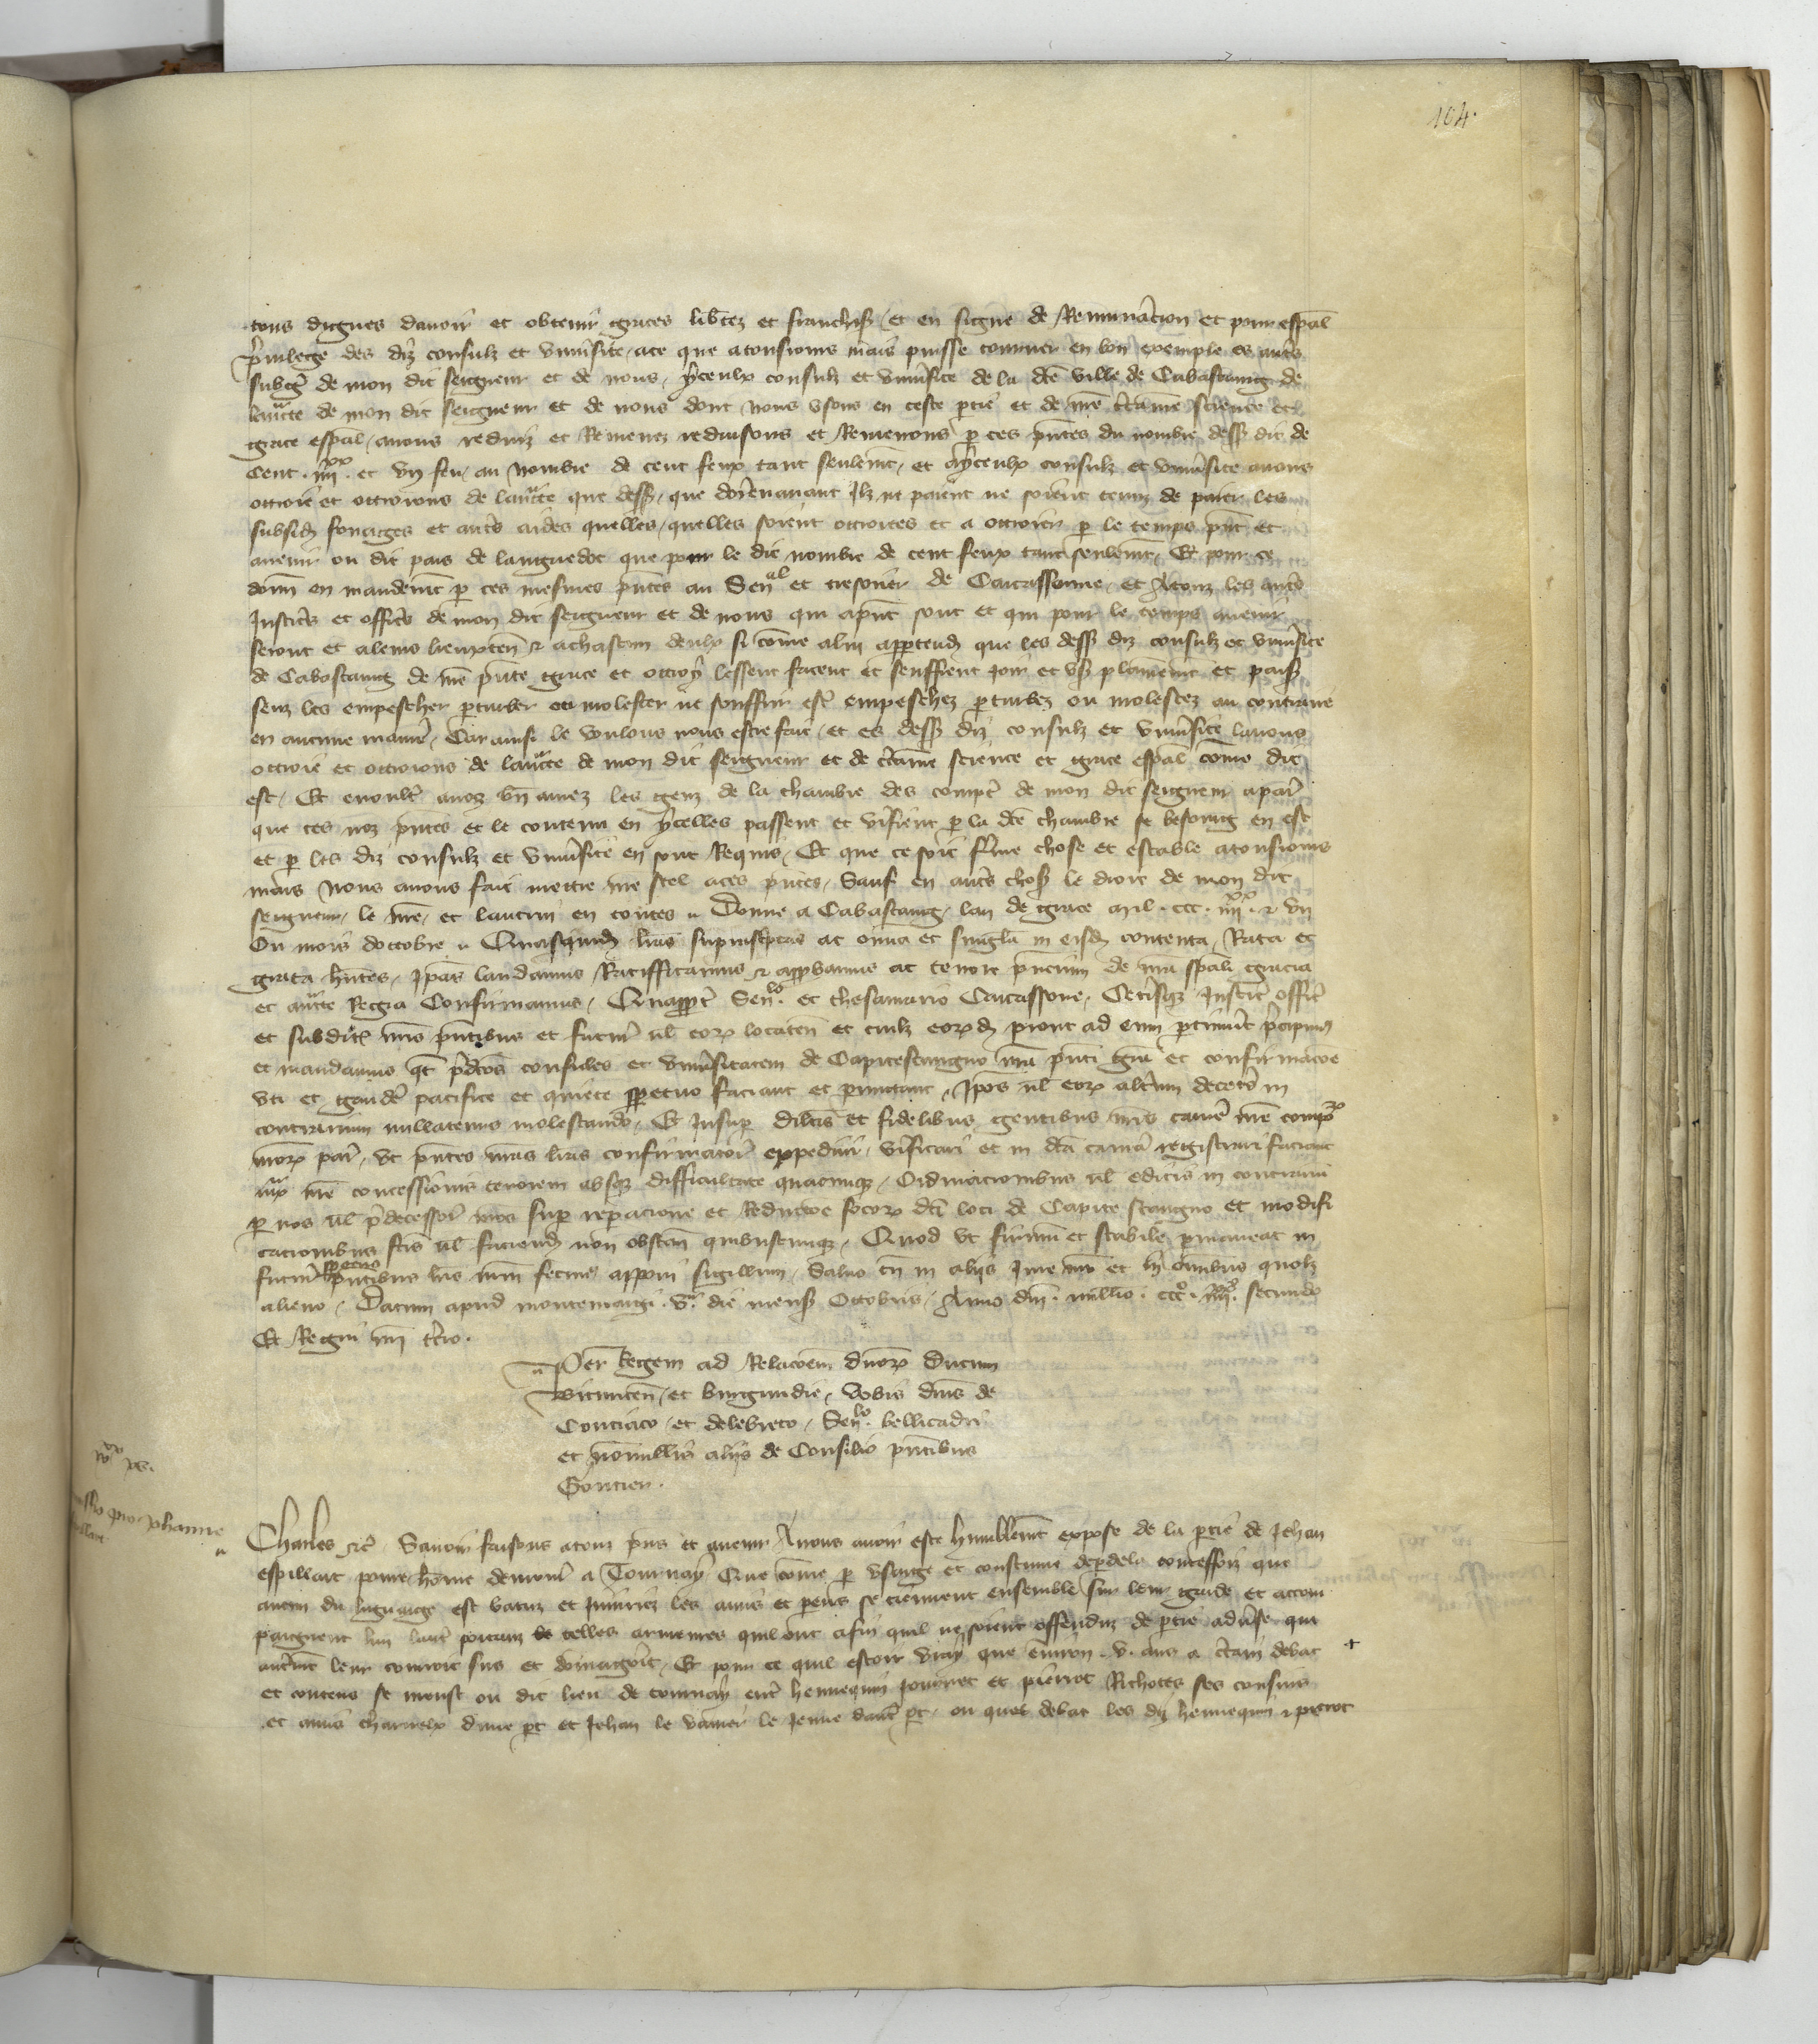 104.
tous dignes davoir et obtenir graces libtez et franchis et en signe de Remunacion et pour espal
privilege des diz consulz et univsite, ace que atousiours mais puisse tourner en bon exemple es autres
subgez de mon dit seigneur et de nous, yceulx consulz et univsite de la dte ville de Cabestaing de
laucte de mon dit seigneur et de nous dont nous usons en ceste ptie et de nre ctaine science et
grace espal, avons reduiz et Remenez reduisons et Remenons p ces pntes du nombre dess dit de
Cent . iiii xx . et un feu, au nombre de cent feux tant seulemt, et a yceulx consulz et univsite avons
ottroie et ottroions de laucte que dess, que dorenavant Ilz ne paient ne soient tenuz de paier les
subsid fouages et autres aides quelles, quelles soient ottroiees et a ottroier p le temps pnt et
avenir ou dit pais de languedoc que pour le dit nombre de cent feux tant seulemt, Et pour ce
donn en mandemt p ces mesmes pntes au Senal et tresorier de Carcassonne, et Atouz les autres
Justics et offics de mon dit seigneur et de nous qui apnt sont et qui pour le temps avenir
seront et aleurs lieuxten et achascun deulx si come alui appertend que les dess diz consulz et univsite
de Cabestaing de nre pnte grace et ottroy lessent facent et seuffrent Joir et us plainemt et pais
senz les empescher pturber ou molester ne souffrir estre empeschez pturbez ou molestez au contraire
en aucune maniere, Car ainsi le voulons nous estre fait, et es dess diz consulz et univsite lavons
ottroie et ottroions de laucte de mon dit seigneur et de ctaine science et grace espal come dit
est, Et enoultre anoz bn amez les genz de la chambre des comptes de mon dit seigneur apar
que ces noz pntes et le contenu en ycelles passent et vifient p la dte chambre se besoing en est
et p les diz consulz et univsite en sont Requis, Et que ce soit ferme chose et estable atousiours
mais Nous avons fait mettre nre seel aces pntes, Sauf en autres chos le droit de mon dit
seigneur, le nre, et lautrui en toutes Donne a Cabestaing, lan de grace mil . ccc . iiii xx . et un
Ou mois doctobre Quasquid lras suprascptas ac omia et singla in eisd contenta, Rata et
grata hntes, Ipas laudamus Ratifficamus et appbamus ac tenore pncium de nra spali gracia
et aucte Regia Confirmamus, Quapptr Senlo. et thesaurario Carcassone, Cetisqz Justic offic
et subdits nris pntibus et futuris ul eorx locaten et cuilz eorxd prout ad eum ptinuit precipim
et mandamus qt pdctos consules et univsitatem de Capitestangno nra pnti gra et confirmacoe
uti et gaudere pacifice et quiete ppetuo faciant et pmittant, Ipos ul eorx altum decetero in
contrarium nullatenus molestando, Et Insup dilctis et fidelibus gentibus nris camere nre compo
norx par, ut pntes nras lras confirmatoris expediri, vificari et in dta camera registrari faciant
iux nre concessionis tenorem absqz difficultate quacumqz, Ordinacionibus ul edictis in contrarium
p nos ul pdecessores nros sup repacione et Reductoe focorx dci loci de Capite stangno et modifi
cacionibus fcis ul faciend non obstan quibuscumqz, Quod ut firmum et stabile pmaneat in
futurum ppetuo pntibus lris nrm fecimus apponi sigillum, Salvo tn in aliis Jure nro et In omibus quolz
alieno, Datum apud montemargi . va. die mens Octobris, Anno dni . millio . ccco . iiiixx. secundo
Et Regni nri tcio.
Per Regem ad Relacoem dnorx Ducum
Bituricen, et burgundie, Vobis dnis de
Couciaco, et delebreto, Senlo. bellicadri
et nonnullis aliis de Consilio pntibus
Gontier.
Charles etc. Savoir faisons atouz pns et avenir Anous avoir este humblemt expose de la ptie de Jehan
espillart povre home demourant a Tournay Que come p usaige et coustume depdela toutesfoiz que
aucun du lignaige est batuz et Iniuriez les amis et pens se tiennent ensemble sur leur garde et accom
paignent lun lautre portans telles armeures quil ont afin quil ne soient offenduz de ptie advse qui
autremt leur courroit sus et domagoit, Et pour ce quil estoit vray que environ . v. ans a ctain debat
et contens se meust ou dit lieu de tournay entre hennequin Jouvret et pierrot Richotes ses cousins
et amis charnelx dune pt et Jehan le vaurier le Jeune dautre pt, ou quel debat les diz hennequin et pierrot